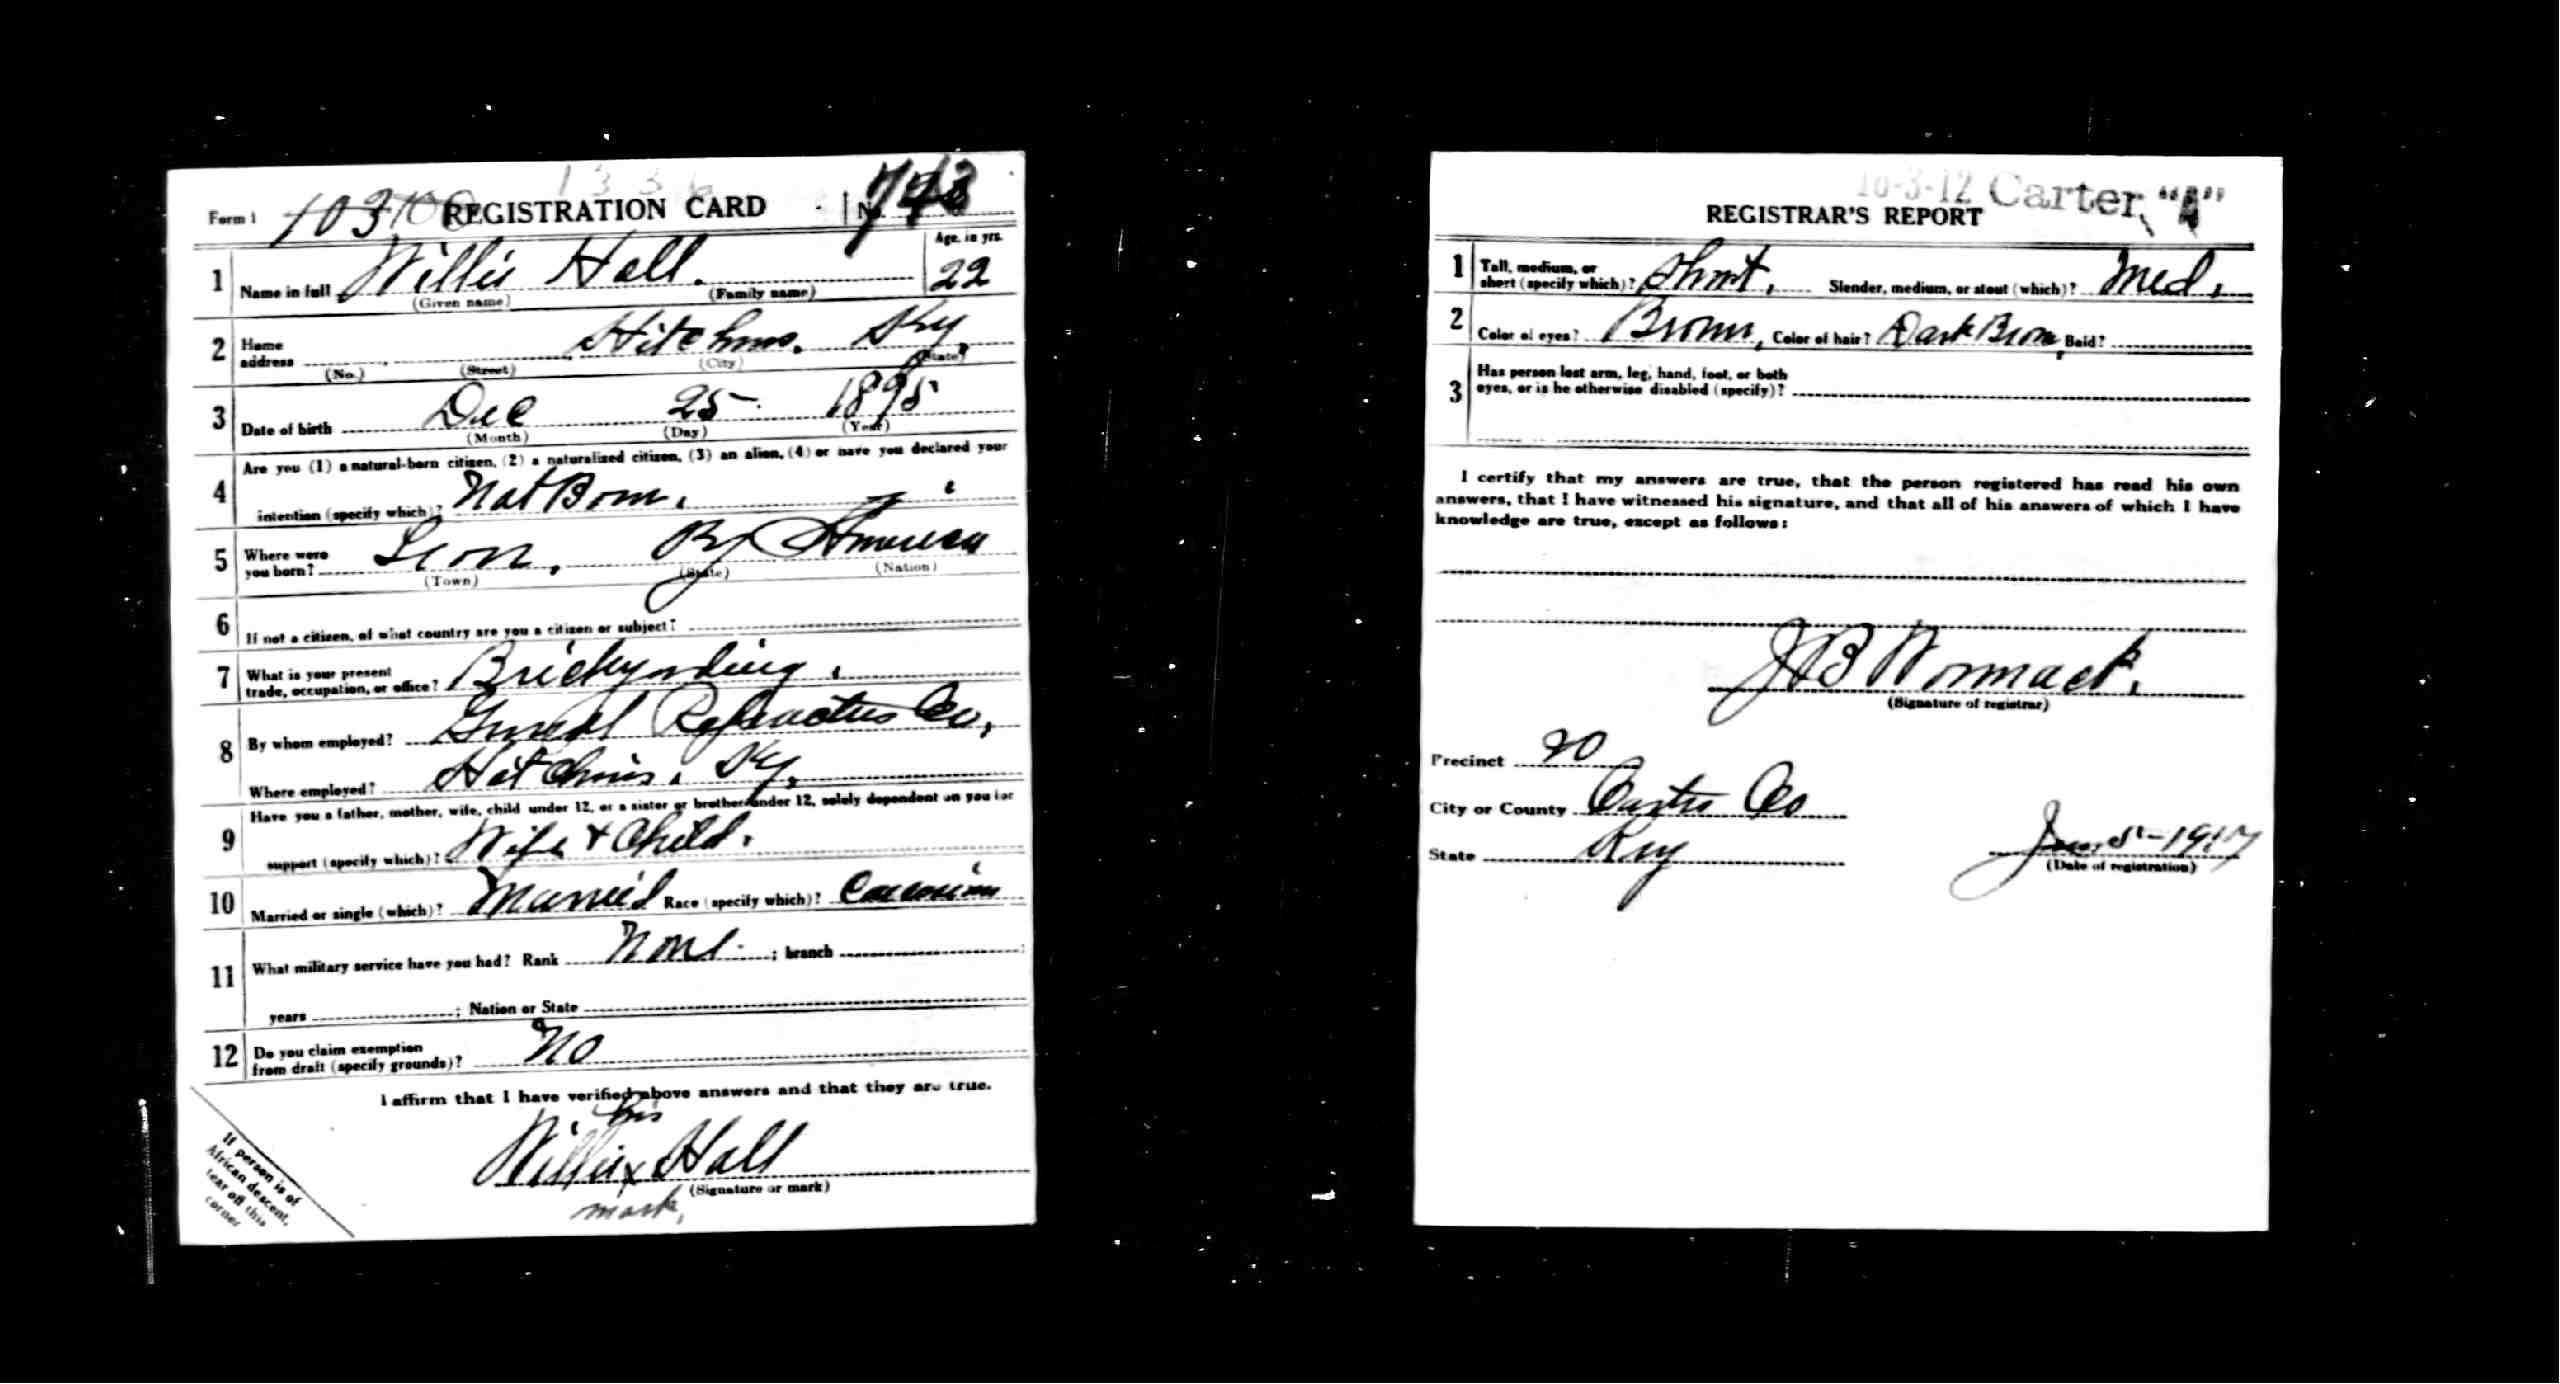 1 3 3
Form 1 103 REGISTRATION CARD No. 743
1 Name in full Willie Hall. Age, in yrs. 22
(Given name) (Family name)
2 Home address Hitchins. Ky.
(No.) (Street) (City) (State)
3 Date of birth Dec 25 1895
(Month) (Day) (Year)
4 Are you (1) a natural-born citizen, (2) a naturalized citizen, (3) an alien, (4) or have you declared your
intention (specify which)? Nat Born.
5 Where were you born? Leon. Ky America
(Town) (State) (Nation)
6 If not a citizen, of what country are you a citizen or subject?
7 What is your present trade, occupation, or office?
8 By whom employed? General Refractories Co,
Where employed? Hitchins. Ky.
9 Have you a father, mother, wife, child under 12, or a sister or brother under 12, solely dependent on you for
support (specify which)? Wife & Child.
10 Married or single (which)? Married Race (specify which)? Caucasian
11 What military service have you had? Rank None ; branch ;
years ; Nation or State
12 Do you claim exemption from draft (specify grounds)? No
I affirm that I have verified above answers and that they are true.
his
Willie x Hall
(Signature or mark)
mark,
If person is of
African descent,
tear off this
corner
16-3-12 Carter "A"
REGISTRAR'S REPORT
1 Tall, medium, or short (specify which)? Short, Slender, medium, or stout (which)? Med,
2 Color of eyes? Brown, Color of hair? Dark Brown, Bald?
3 Has person lost arm, leg, hand, foot, or both
eyes, or is he otherwise disabled (specify)?
I certify that my answers are true, that the person registered has read his own
answers, that I have witnessed his signature, and that all of his answers of which I have
knowledge are true, except as follows:
J B Wommack.
(Signature of registrar)
Precinct 20
City or County Carter Co
State Ky June 5-1917
(Date of registration)